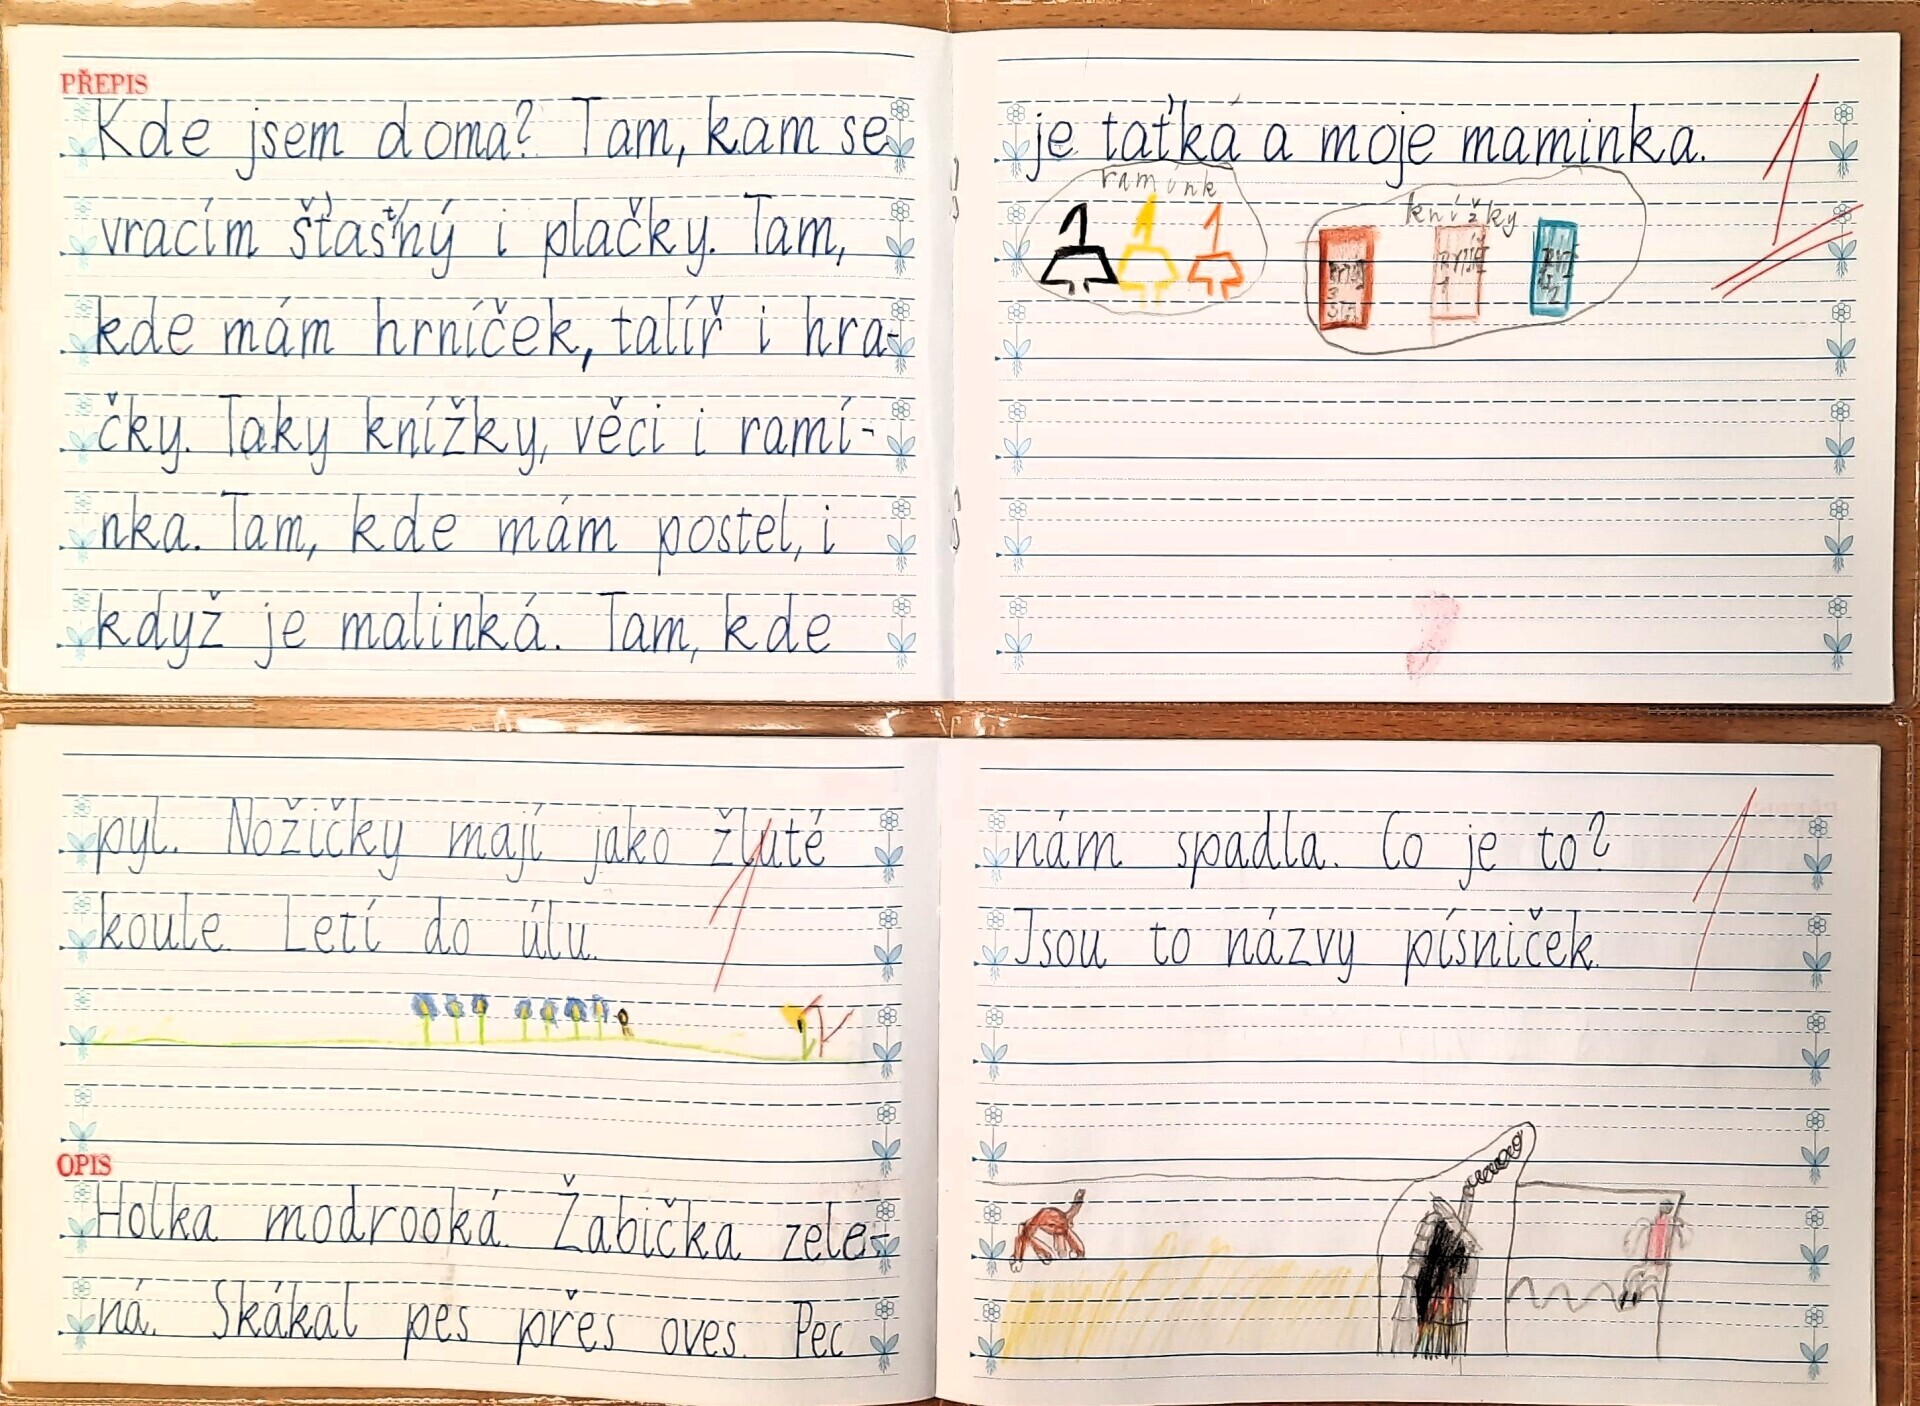 PŘEPIS
Kde jsem doma? Tam, kam se
vracím šťastný i plačky. Tam,
kde mám hrníček, talíř i hra-
čky. Taky knížky, věci i ramí-
nka. Tam, kde mám postel, i
když je malinká. Tam, kde
je taťká a moje maminka.
1
ramínk
knížky
pyl. Nožičky mají jako žluté
koule. Letí do úlu.
1
OPIS
Holka modrooká. Žabička zele-
ná. Skákal pes přes oves. Pec
nám spadla. Co je to?
Jsou to názvy písniček.
1